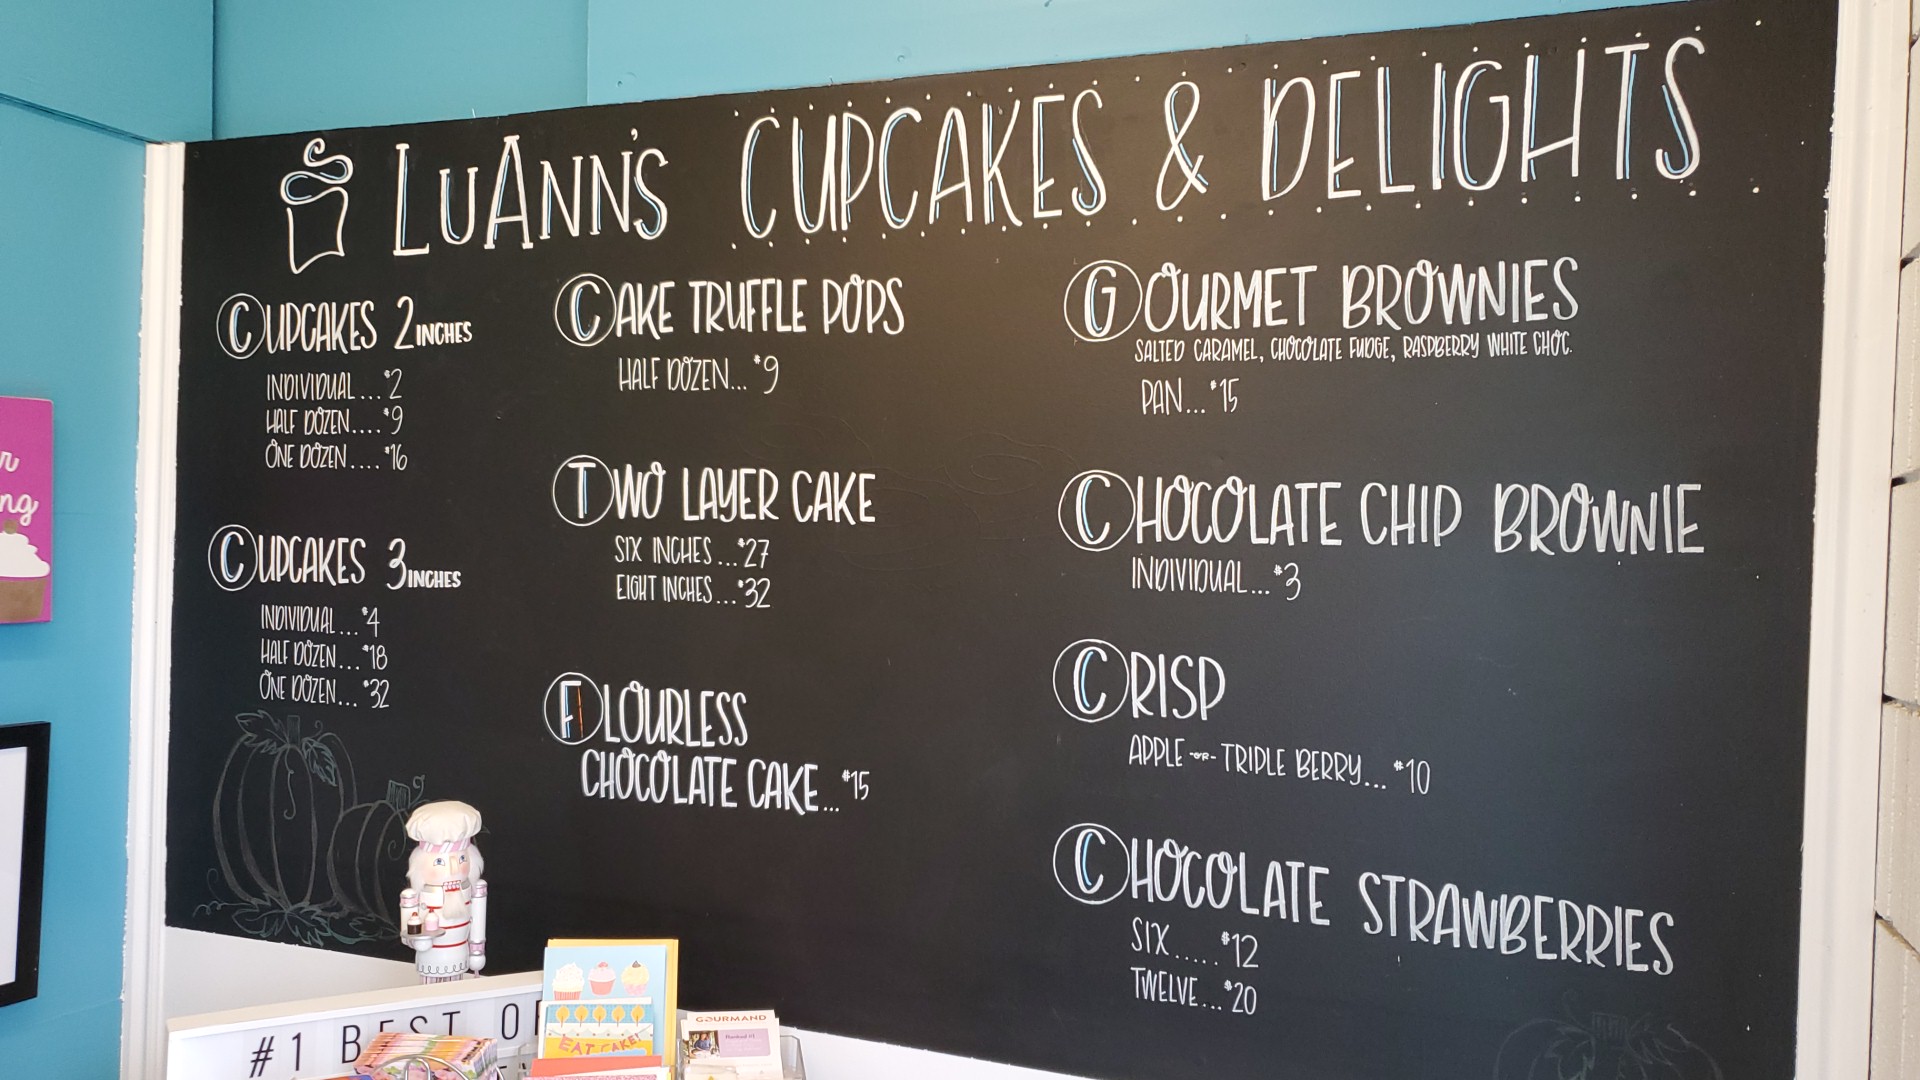 LUANN'S CUPCAKES & DELIGHTS
CUPCAKES 2 INCHES
INDIVIDUAL... $2
HALF DOZEN.... $9
ONE DOZEN.... $16
CUPCAKES 3 INCHES
INDIVIDUAL... $4
HALF DOZEN... $18
ONE DOZEN... $32
CAKE TRUFFLE POPS
HALF DOZEN... $9
TWO LAYER CAKE
SIX INCHES... $27
EIGHT INCHES... $32
FLOURLESS
CHOCOLATE CAKE... $15
GOURMET BROWNIES
SALTED CARAMEL, CHOCOLATE FUDGE, RASPBERRY WHITE CHOC.
PAN... $15
CHOCOLATE CHIP BROWNIE
INDIVIDUAL... $3
CRISP
APPLE -OR- TRIPLE BERRY... $10
CHOCOLATE STRAWBERRIES
SIX..... $12
TWELVE... $20
#1 BEST
EAT CAKE!
GOURMAND